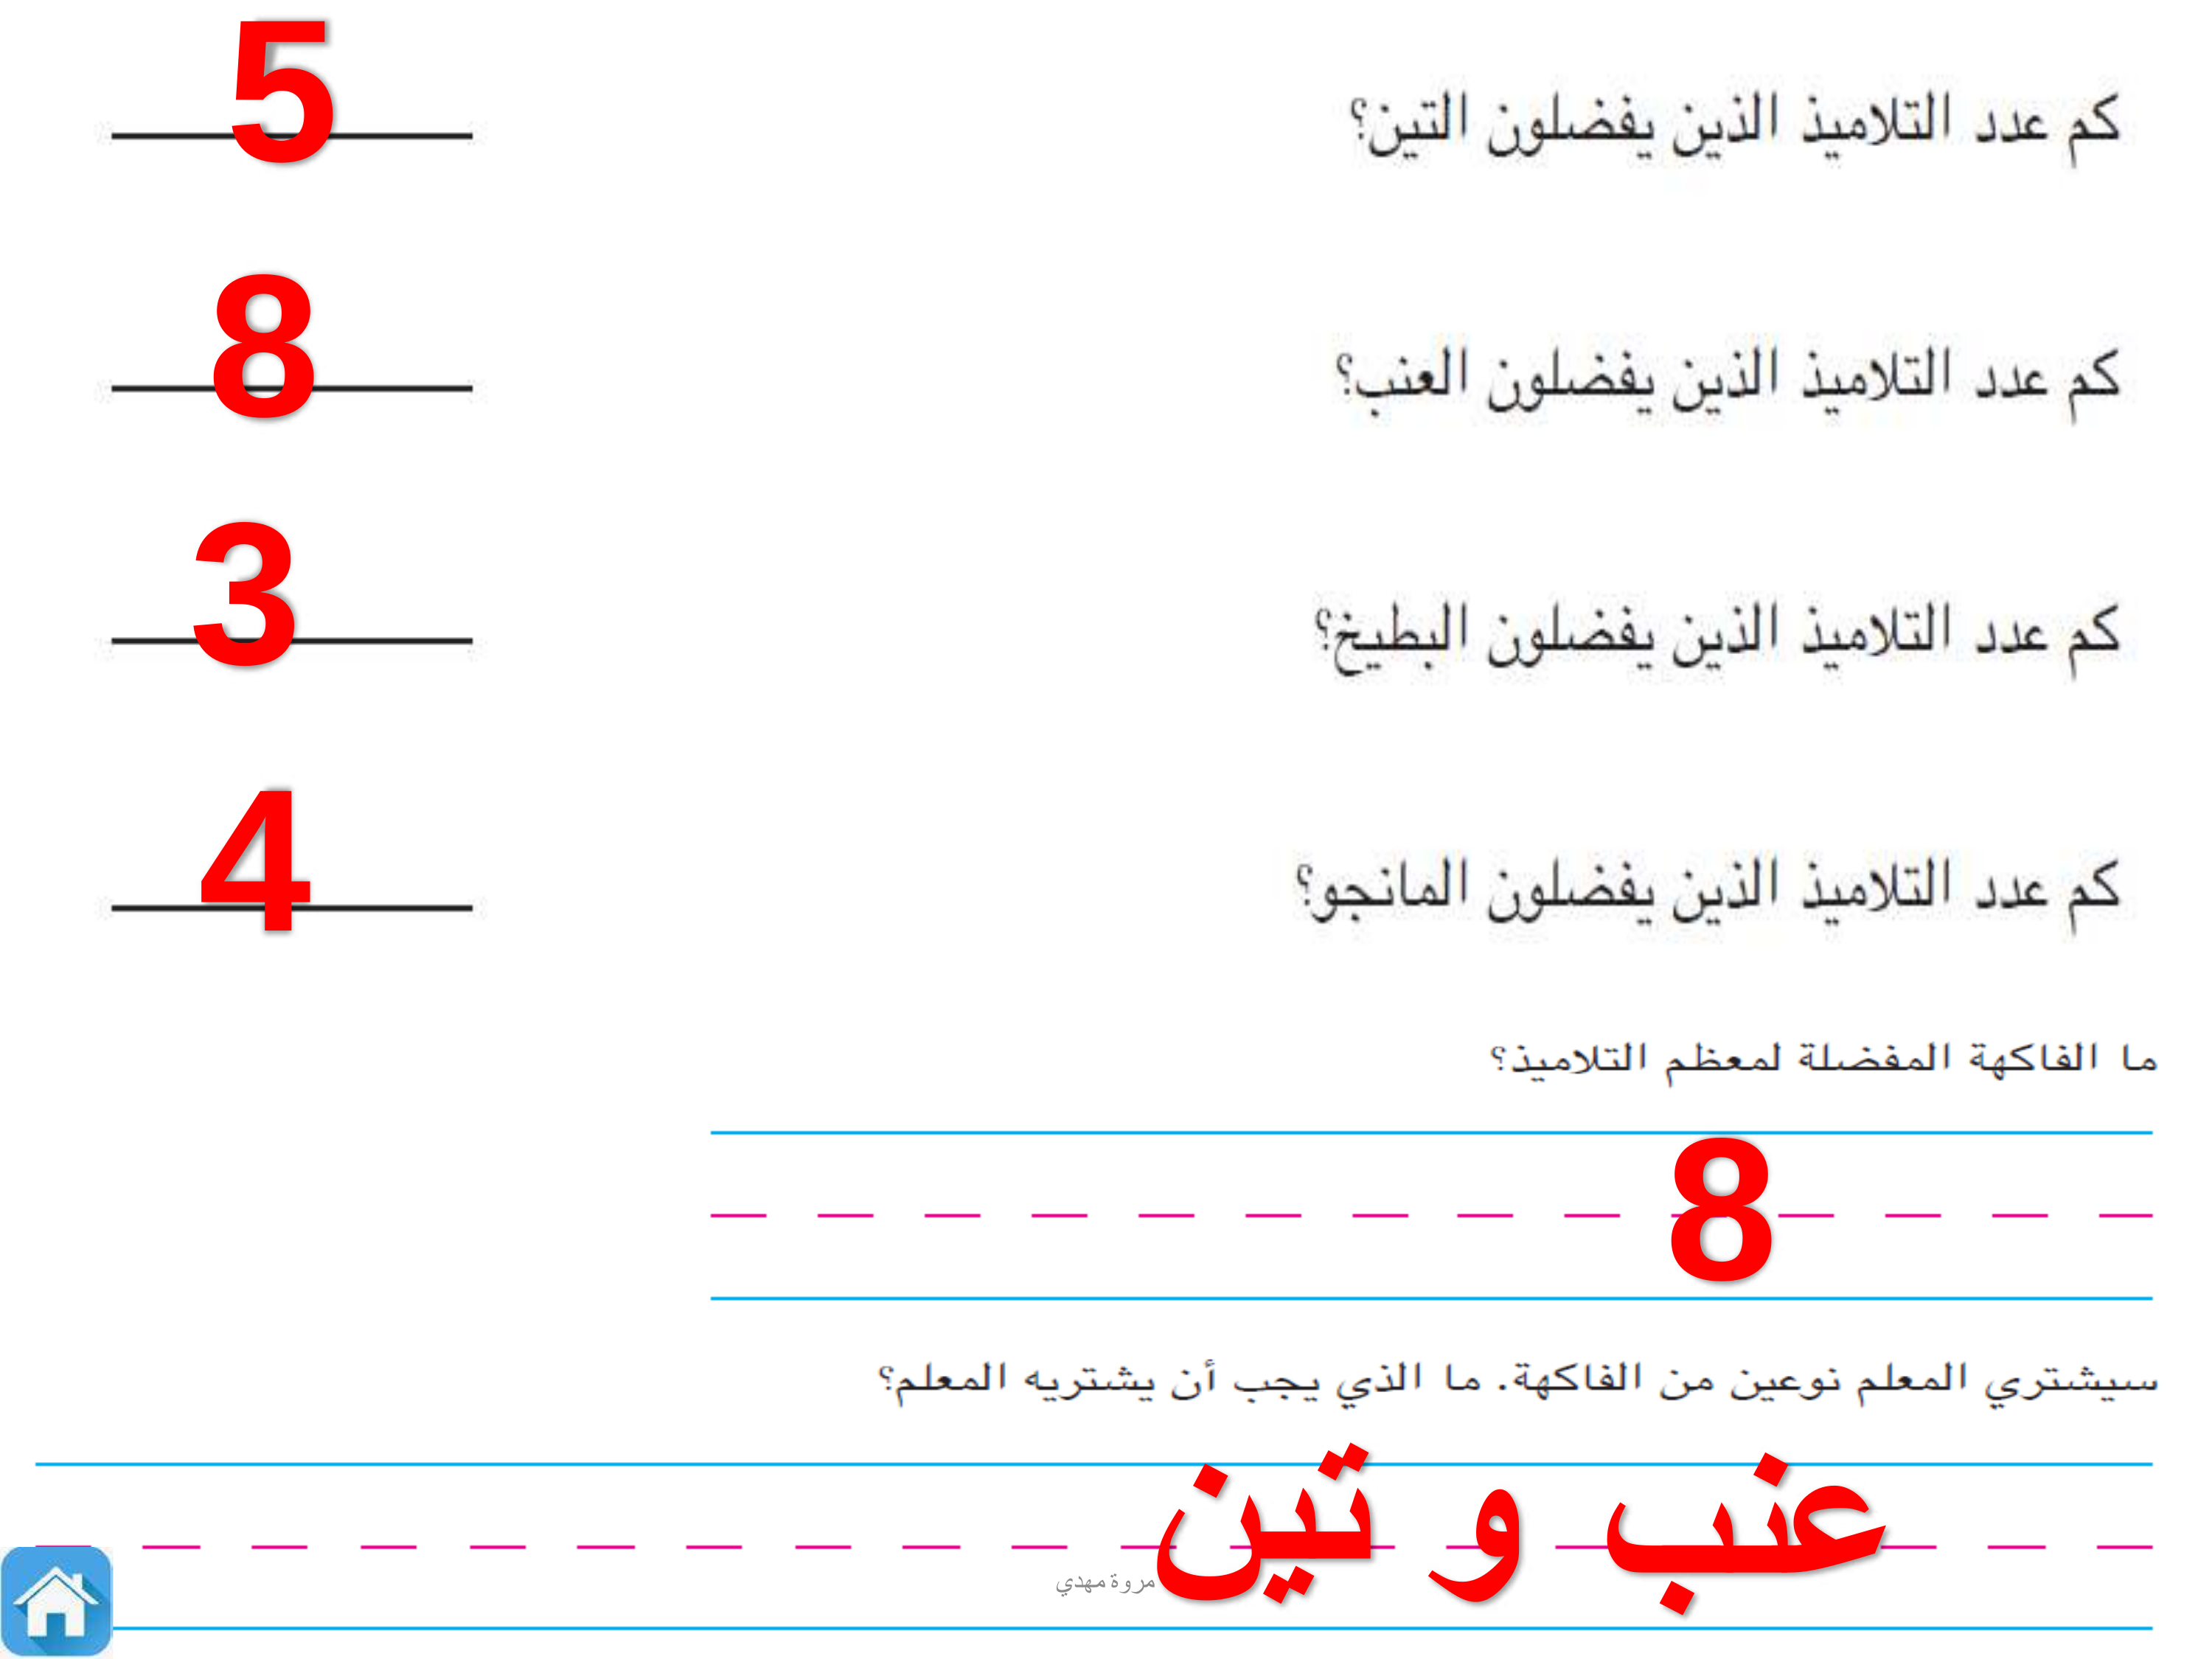 كم عدد التلاميذ الذين يفضلون التين؟ 5
كم عدد التلاميذ الذين يفضلون العنب؟ 8
كم عدد التلاميذ الذين يفضلون البطيخ؟ 3
كم عدد التلاميذ الذين يفضلون المانجو؟ 4
ما الفاكهة المفضلة لمعظم التلاميذ؟
8
سيشتري المعلم نوعين من الفاكهة. ما الذي يجب أن يشتريه المعلم؟
عنب و تين
مروة مهدي